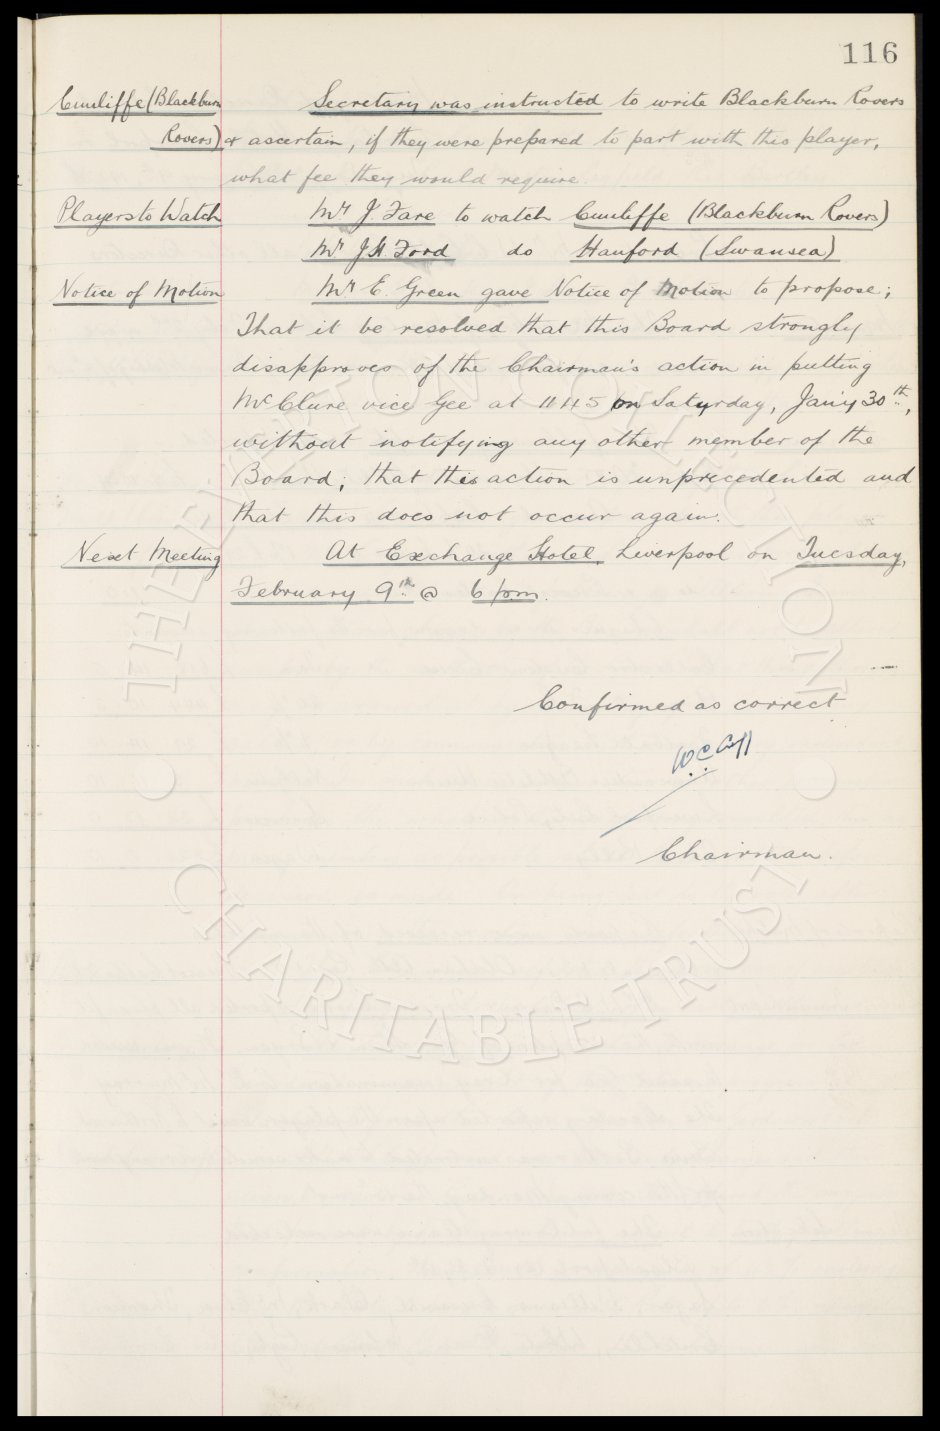 116
Cunliffe (Blackburn Secretary was instructed to write Blackburn Rovers
Rovers) & ascertain, if they were prepared to part with this player,
what fee they would require.
Players to Watch Mr J. Fare to watch Cunliffe (Blackburn Rovers)
Mr J.H. Ford do Hanford (Swansea)
Notice of Motion Mr E. Green gave Notice of Motion to propose;
That it be resolved that this Board strongly
disapproves of the Chairman's action in putting
McClure vice Gee at 11 45 on Saturday, Jan'y 30th,
without notifying any other member of the
Board; that this action is unprecedented and
that this does not occur again.
Next Meeting At Exchange Hotel, Liverpool on Tuesday,
February 9th @ 6 pm.
Confirmed as correct
W.C. Cuff
Chairman.
THE EVERTON COLLECTION
CHARITABLE TRUST